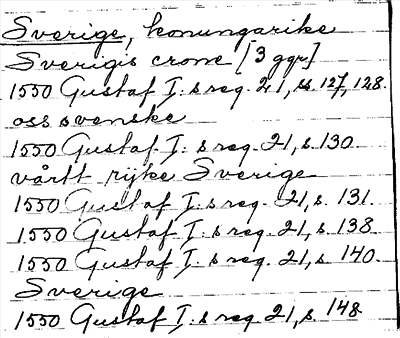 Sverige, konungarike
Sverigis crone [3 ggr.]
1550 Gustaf I:s reg. 21, ss. 127, 128.
oss svenske
1550 Gustaf I:s reg. 21, s. 130.
vårtt rijke Sverige
1550 Gustaf I:s reg. 21, s. 131.
1550 Gustaf I:s reg. 21, s. 138
1550 Gustaf I:s reg. 21, s. 140.
Sverige
1550 Gustaf I:s reg. 21, s. 148